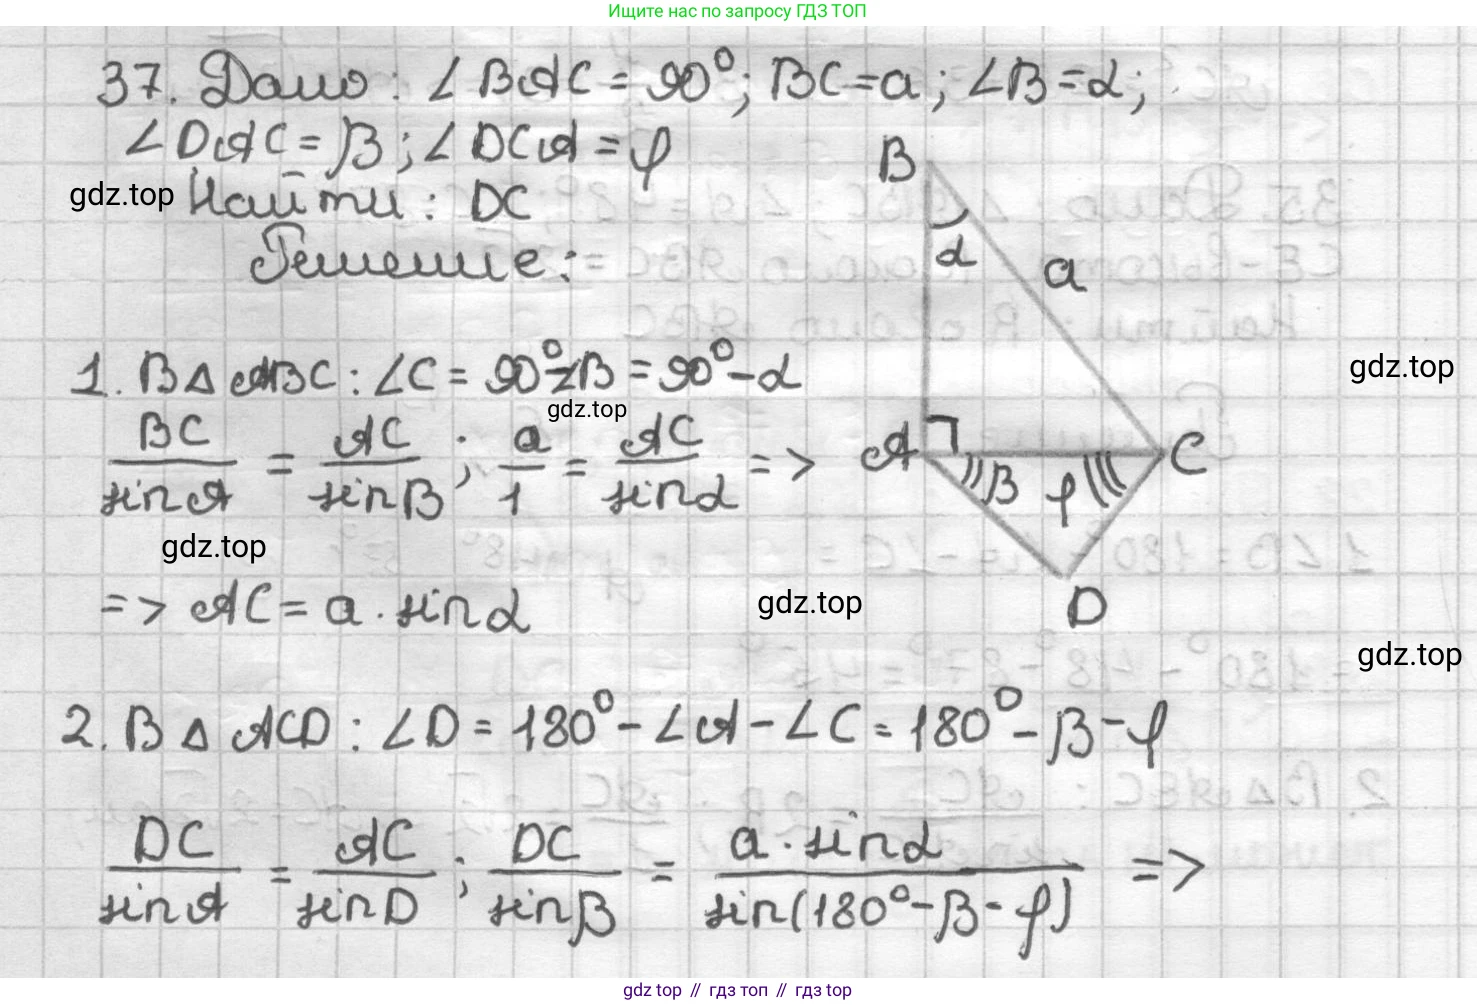 Ищите нас по запросу ГДЗ ТОП
37. Дано: ∠BAC = 90°; BC = a; ∠B = α;
∠DAC = β; ∠DCA = φ
gdz.top
Найти: DC
Решение:
B
α
a
A
C
β
φ
D
1. В △ ABC: ∠C = 90° - ∠B = 90° - α
gdz.top
gdz.top
BC/sin A = AC/sin B; a/1 = AC/sin α =>
gdz.top
=> AC = a · sin α
gdz.top
gdz.top
2. В △ ACD: ∠D = 180° - ∠A - ∠C = 180° - β - φ
DC/sin A = AC/sin D; DC/sin β = a · sin α/sin(180° - β - φ) =>
gdz top // гдз топ // гдз top